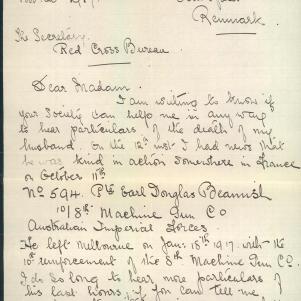 Renmark.
The Secretary.
Red Cross Bureau
Dear Madam.
I am writing to know if
your Society can help me in any way
to hear particulars of the death of my
husband. On the 12th inst I had news that
he was kind in action somewhere in France
on October 11th
No 594. Pte Earl Douglas Beamish
10/8th Machine Gun Co
Australian Imperial Forces.
He left Melbourne on Jan 15th 1917. with the
10th reinforcement of the 8th Machine Gun Co.
I do so long to hear more particulars of
his last hours, if you can tell me